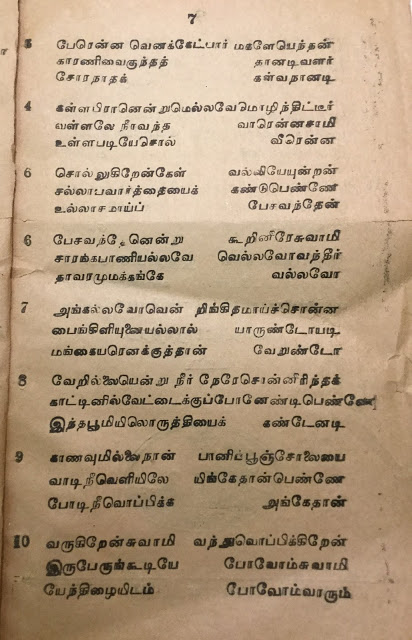 7
3 பேரென்ன வெனக்கேட்பார் மகளேயெந்தன்
காரணிவைகுந்தத் தானடிவளர்
சோரநாதக் கள்வநானடி
4 கள்ளபிரானென்றுமெல்லவேமொழிந்திட்டீர்
வள்ளலே நீர்வந்த வாரென்னசாமி
உள்ளபடியேசொல் வீரென்ன
6 சொல்லுகிறேன்கேள் வல்லியேயுன்றன்
சல்லாபவார்த்தையைக் கண்டுபெண்ணே
உல்லாசமாய்ப் பேசவந்தேன்
6 பேசவந்தேனென்று கூறினீரேசுவாமி
சாரங்கபாணியல்லவே வெல்லவோவந்தீர்
தாவரமுமக்கங்கே வல்லவோ
7 அங்கல்லவோவென் றிங்கிதமாய்ச்சொன்ன
பைங்கிளியுனையல்லால் யாருண்டோயடி
மங்கையரெனக்குத்தான் வேறுண்டோ
8 வேறில்லையென்று நீர் நேரேசொன்னீரிந்தக்
காட்டினில்வேட்டைக்குப்போனேண்டிபெண்ணே
இந்தபூமியிலொருத்தியைக் கண்டேனடி
9 காணவுமில்லைநான் பானிப்பூஞ்சோலையை
வாடிநீவெளியிலே யிங்கேதான்பெண்ணே
போடிநீவொப்பிக்க அங்கேதான்
10 வருகிறேன்சுவாமி வந்துவொப்பிக்கிறேன்
இருபேருங்கூடியே போவோம்சுவாமி
யேந்திழையிடம் போவோம்வாரும்